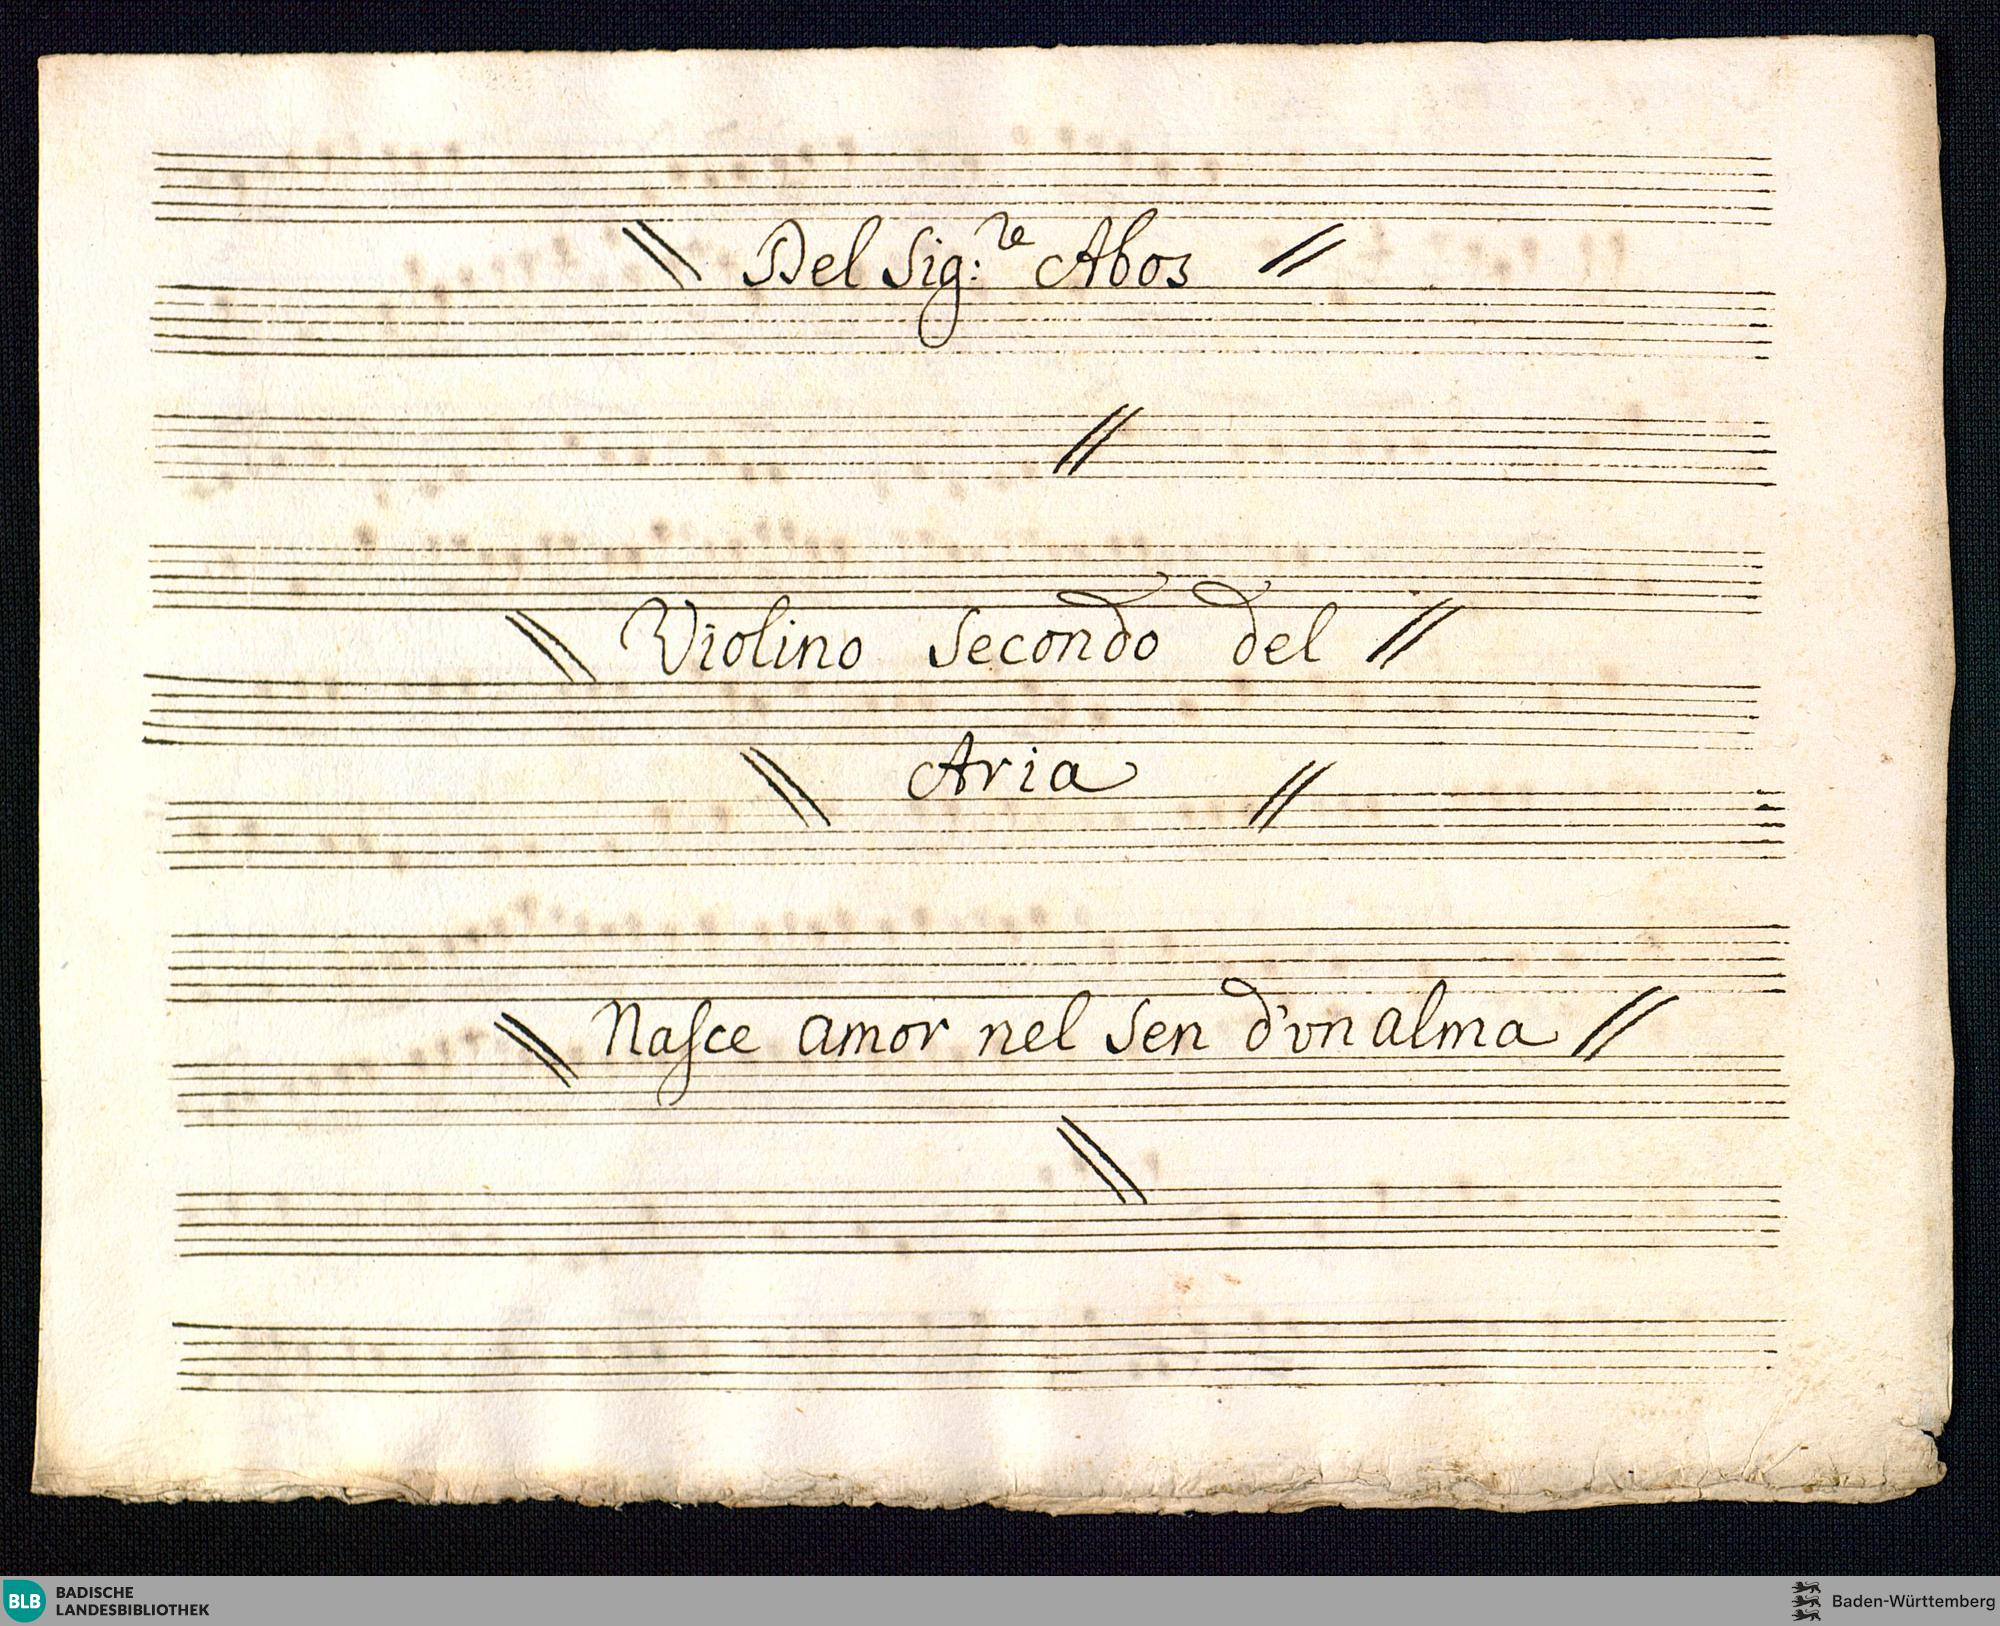 \\ Del Sig:re Abos //
//
\\ Violino Secondo del //
\\ Aria //
\\ Nasce amor nel Sen d'vn alma //
\\
BLB BADISCHE LANDESBIBLIOTHEK
Baden-Württemberg